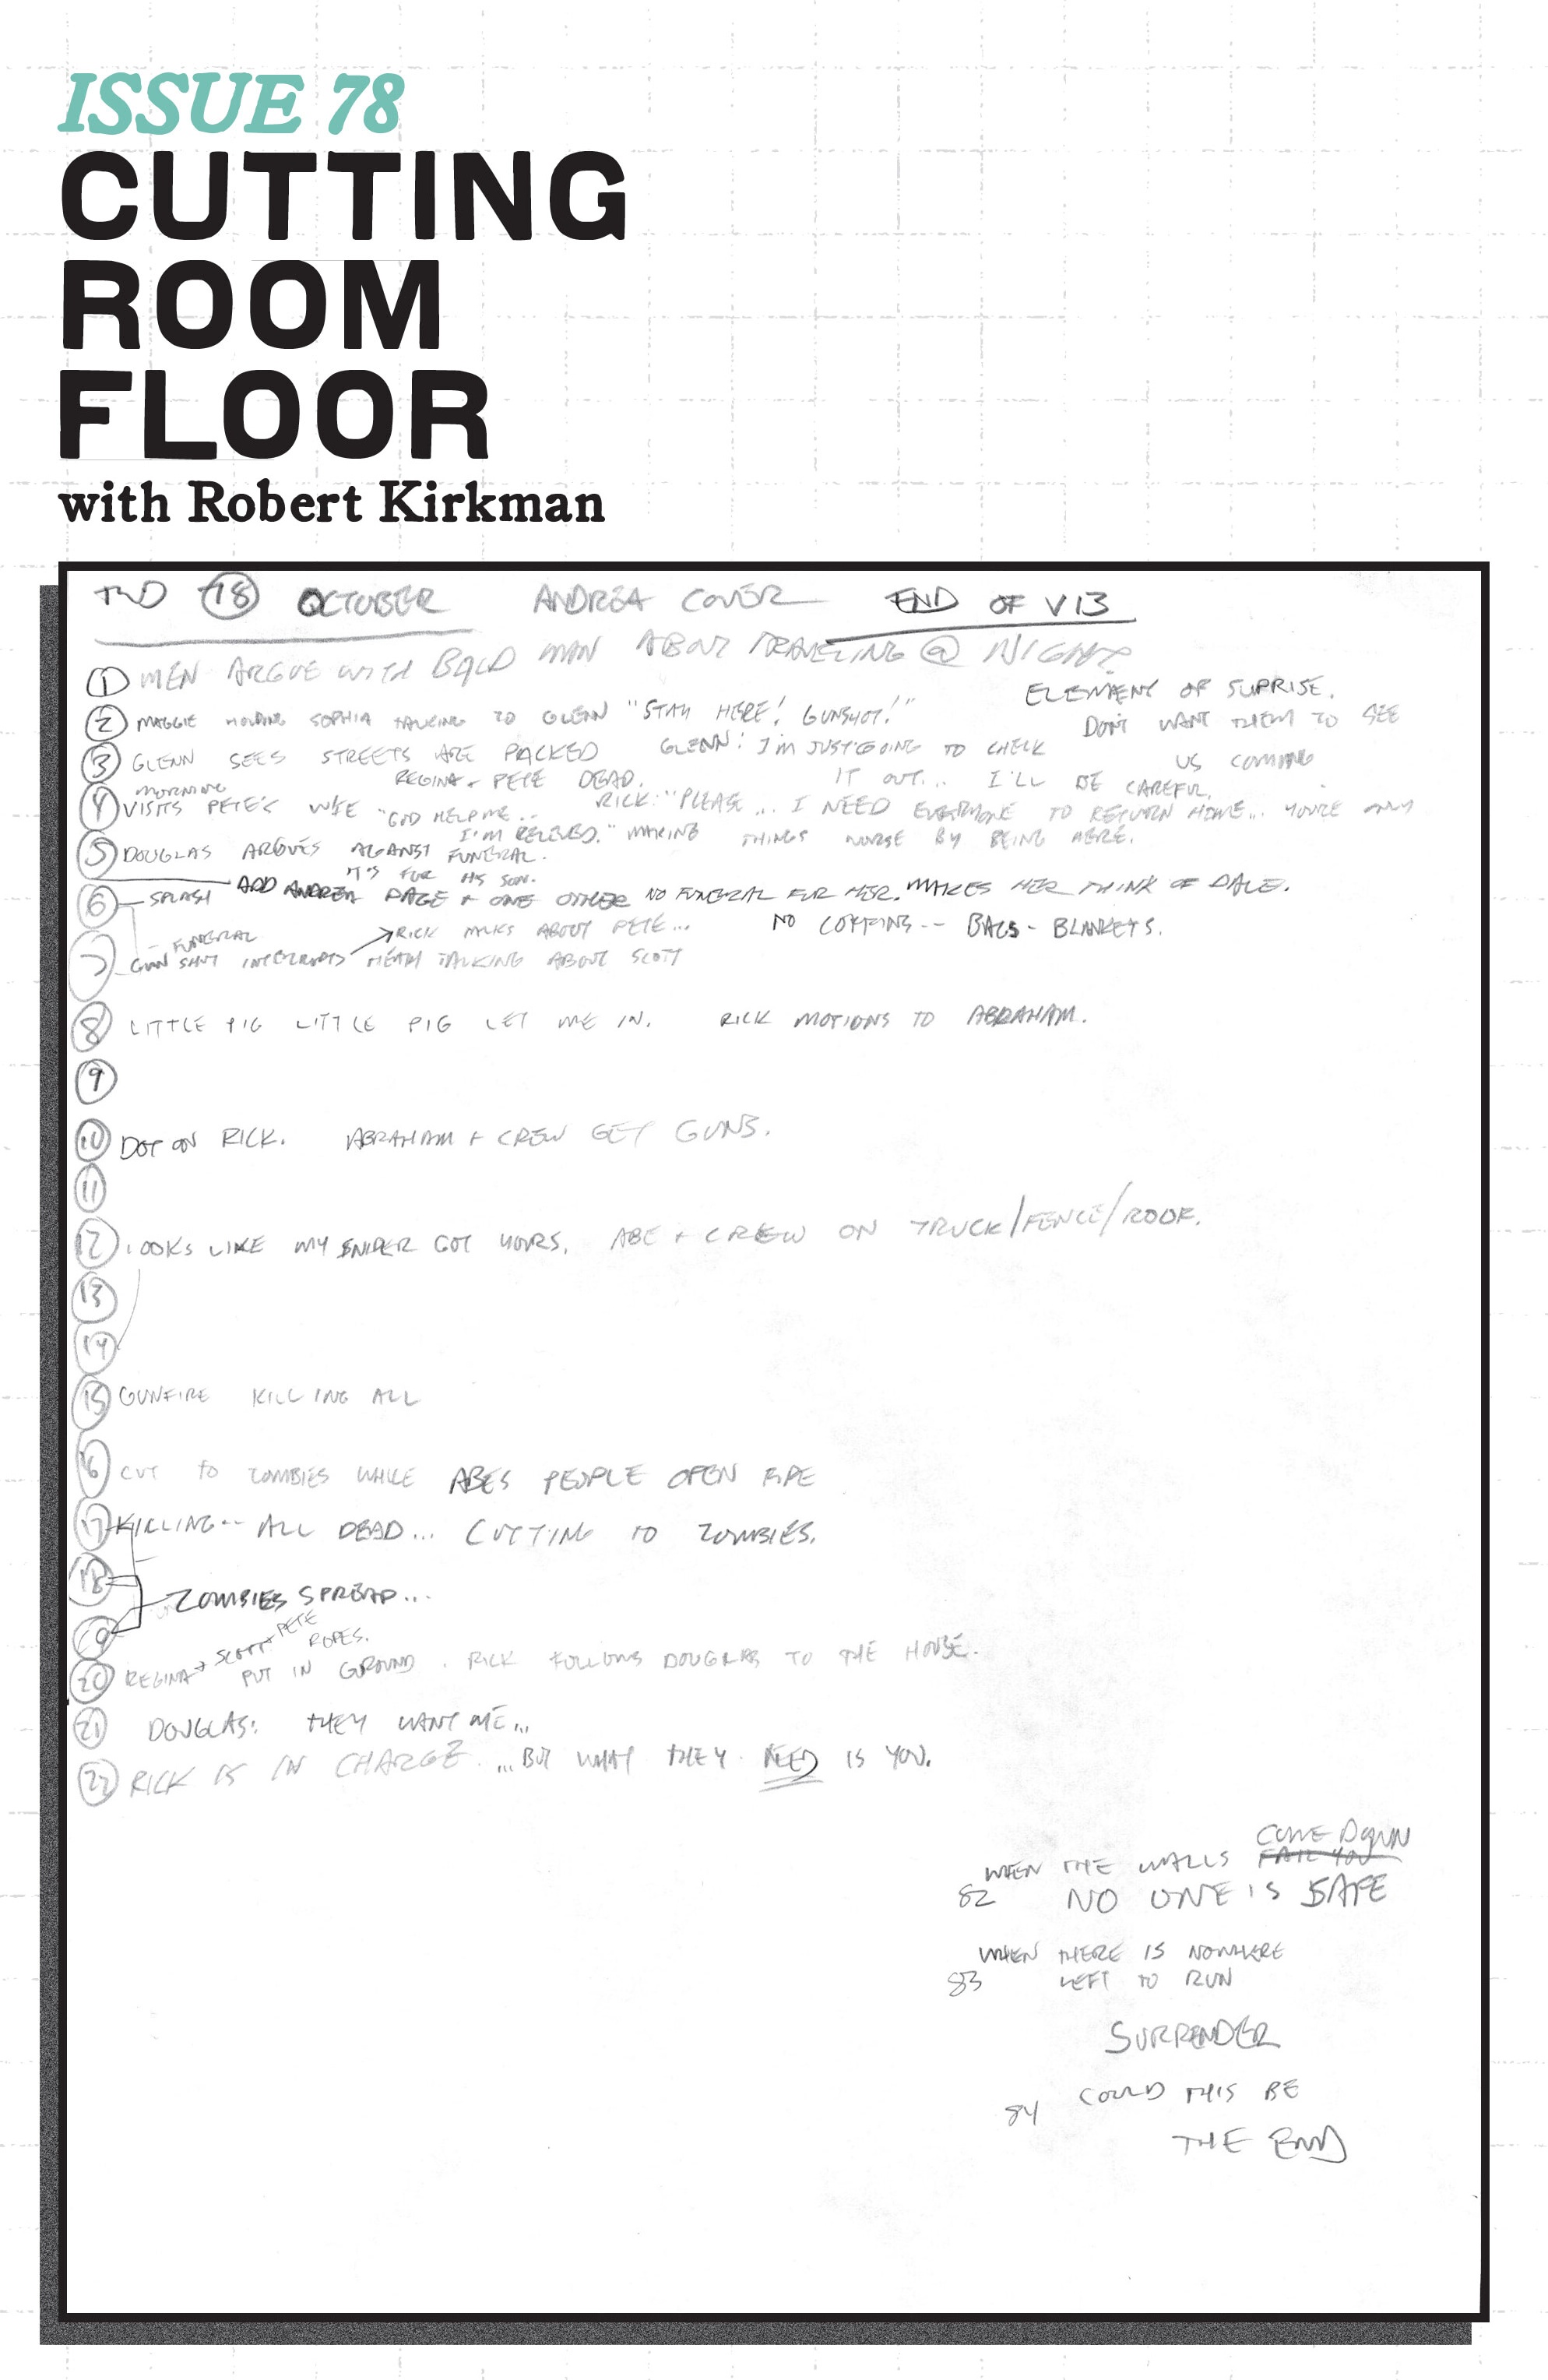 ISSUE 78
CUTTING
ROOM
FLOOR
with Robert Kirkman
TWD 78 OCTOBER ANDREA COVER END OF V13
1 MEN ARGUE WITH BALD MAN ABOUT TRAVELING @ NIGHT
ELEMENT OF SUPRISE.
DON'T WANT THEM TO SEE
US COMING
2 MAGGIE HOLDING SOPHIA TALKING TO GLENN "STAY HERE! GUNSHOT!"
GLENN: I'M JUST GOING TO CHECK
IT OUT... I'LL BE CAREFUL.
3 GLENN SEES STREETS ARE PACKED
REGINA + PETE DEAD.
RICK: "PLEASE... I NEED EVERYONE TO RETURN HOME... YOU'RE ONLY
MAKING THINGS WORSE BY BEING HERE.
MORNING
4 VISITS PETE'S WIFE "GOD HELP ME..
I'M RELIEVED."
5 DOUGLAS ARGUES AGAINST FUNERAL.
IT'S FOR HIS SON.
6 - SPLASH ADD ANDREA PAGE + ONE OTHER NO FUNERAL FOR HER. MAKES HER THINK OF DALE.
- FUNERAL RICK TALKS ABOUT PETE... NO COFFINS -- BAGS - BLANKETS.
7 GUN SHOT INTERRUPTS HEATH TALKING ABOUT SCOTT
8 LITTLE PIG LITTLE PIG LET ME IN. RICK MOTIONS TO ABRAHAM.
9
10 DOT ON RICK. ABRAHAM + CREW GET GUNS.
11
12 LOOKS LIKE MY SNIPER GOT YOURS. ABE + CREW ON TRUCK/FENCE/ROOF.
13
14
15 GUNFIRE KILLING ALL
16 CUT TO ZOMBIES WHILE ABES PEOPLE OPEN FIRE
17 KILLING -- ALL DEAD... CUTTING TO ZOMBIES.
18
ZOMBIES SPREAD...
19
20 REGINA + SCOTT + PETE PUT IN GROUND. ROPES. RICK FOLLOWS DOUGLAS TO THE HOUSE.
21 DOUGLAS: THEY WANT ME...
...BUT WHAT THEY NEED IS YOU.
22 RICK IS IN CHARGE
WHEN THE WALLS FAIL YOU COME DOWN
82 NO ONE IS SAFE
WHEN THERE IS NOWHERE
83 LEFT TO RUN
SURRENDER
84 COULD THIS BE
THE END